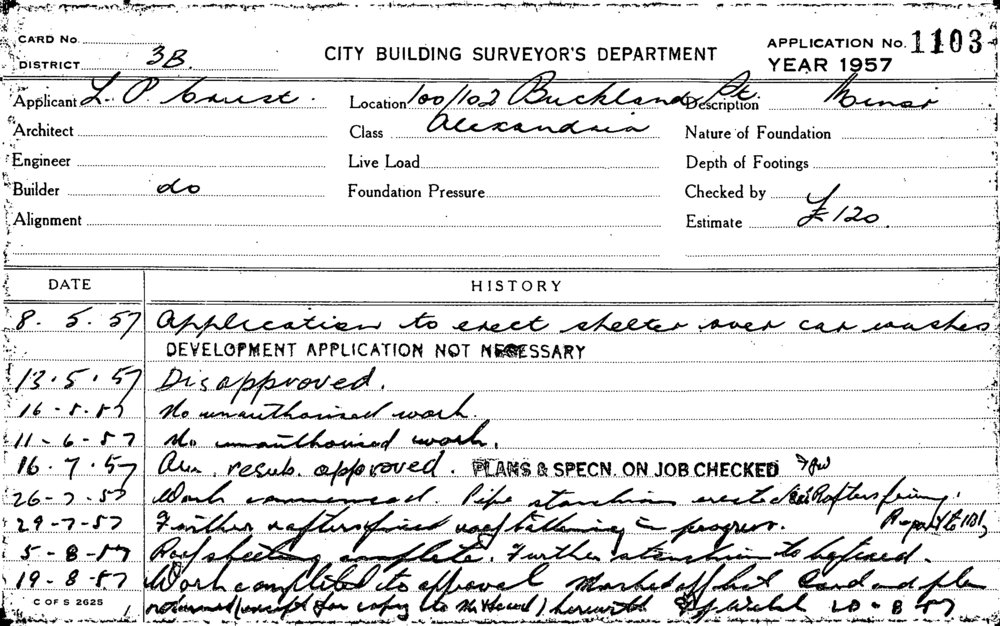 CARD No.
DISTRICT 3B.
CITY BUILDING SURVEYOR'S DEPARTMENT
APPLICATION No. 1103
YEAR 1957
Applicant L. P.
Location 100/102 Buckland St.
Alexandria
Description Minor
Architect
Class
Nature of Foundation
Engineer
Live Load
Depth of Footings
Builder do
Foundation Pressure
Checked by
Alignment
Estimate £120
DATE HISTORY
8. 5. 57 Application to erect shelter over car washes
DEVELOPMENT APPLICATION NOT NECESSARY
13. 5. 57 Disapproved.
16-5-57 No unauthorised work.
11-6-57 No unauthorised work.
16. 7. 57 resub. approved. PLANS & SPECN. ON JOB CHECKED
26-7-57 Work commenced. Pipe stanchions erected Rafters fixing.
29-7-57 Further rafters fixed roof battening in progress.
5-8-57 Roof sheeting complete. Further stanchion to be fixed.
19-8-57 Work completed to approval Marked off list Card and plan
returned (except for copy to ) herewith 20-8-57
C OF S 2625